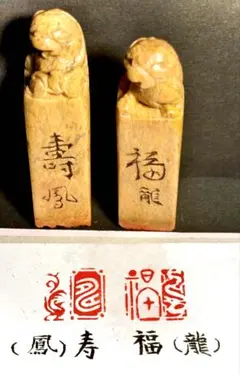 壽
鳳
福
龍
(鳳)寿 福(龍)